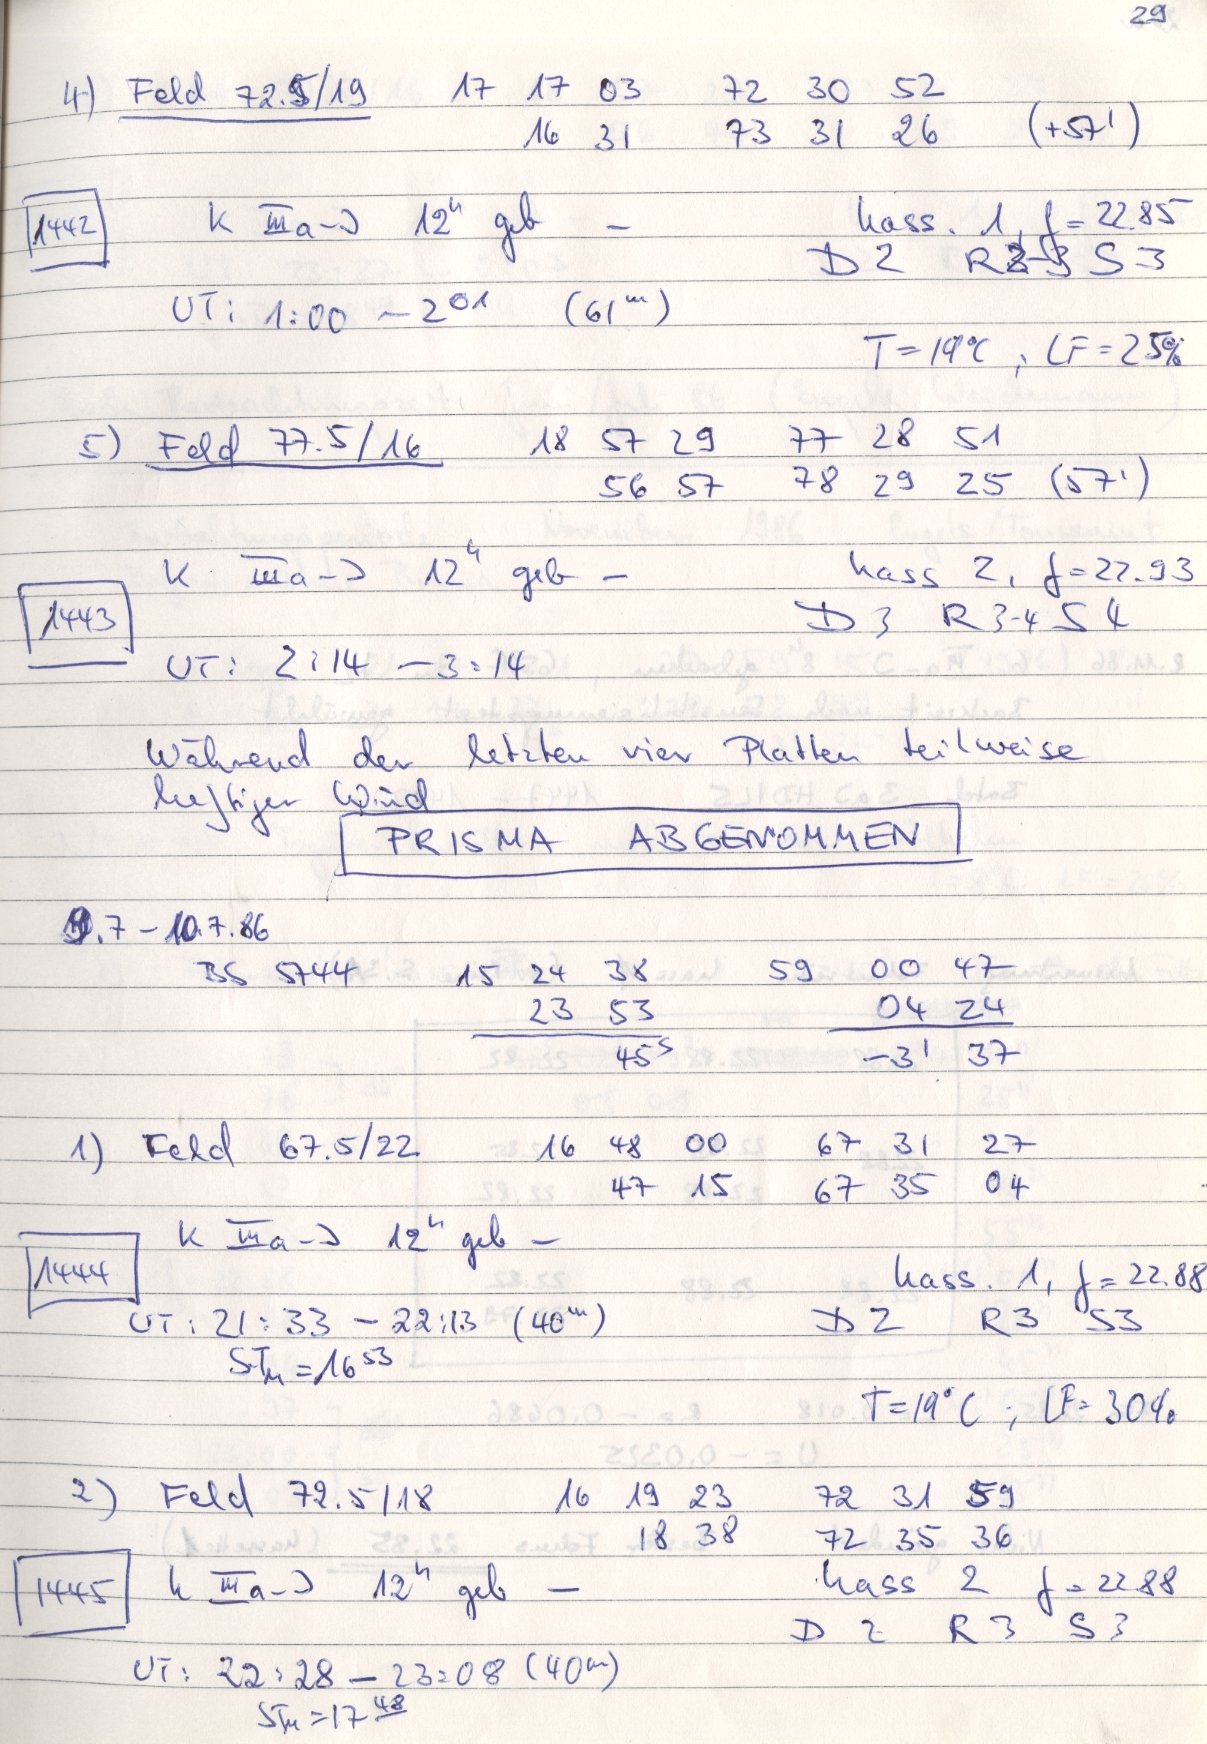 29
4) Feld 72.5/19 17 17 03 72 30 52
16 31 73 31 26 (+57')
1442 K IIIa-J 12h geb - Kass. 1, f=22.85
D2 R2-3 S3
UT: 1:00 - 2 01 (61m)
T=19°C ; LF=25%
5) Feld 77.5/16 18 57 29 77 28 51
56 57 78 29 25 (57')
K IIIa-J 12h geb - Kass 2, f=22.93
1443 D3 R3-4 S4
UT: 2:14 - 3:14
Während der letzten vier Platten teilweise
heftiger Wind
PRISMA ABGENOMMEN
9.7-10.7.86
BS 5744 15 24 38 59 00 47
23 53 04 24
45s -3' 37
1) Feld 67.5/22 16 48 00 67 31 27
47 15 67 35 04
K IIIa-J 12h geb -
1444 Kass. 1, f=22.88
UT: 21:33 - 22:13 (40m) D2 R3 S3
STM=16 53
T=19°C ; LF=30%
2) Feld 72.5/18 16 19 23 72 31 59
18 38 72 35 36
1445 K IIIa-J 12h geb - Kass 2 f=22.88
D 2 R3 S3
UT: 22:28 - 23:08 (40m)
STM=17 48